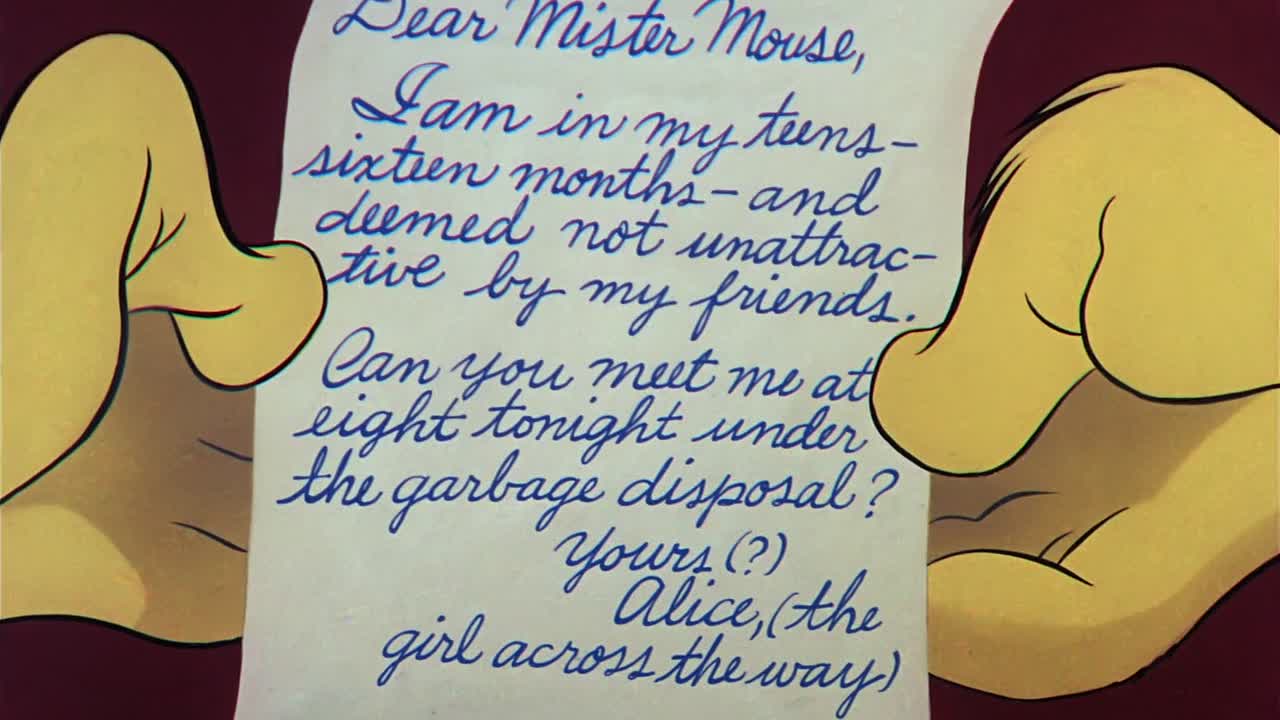 Dear Mister Mouse,
I am in my teens-
sixteen months-and
deemed not unattrac-
tive by my friends.
Can you meet me at
eight tonight under
the garbage disposal?
Yours (?)
Alice, (the
girl across the way)